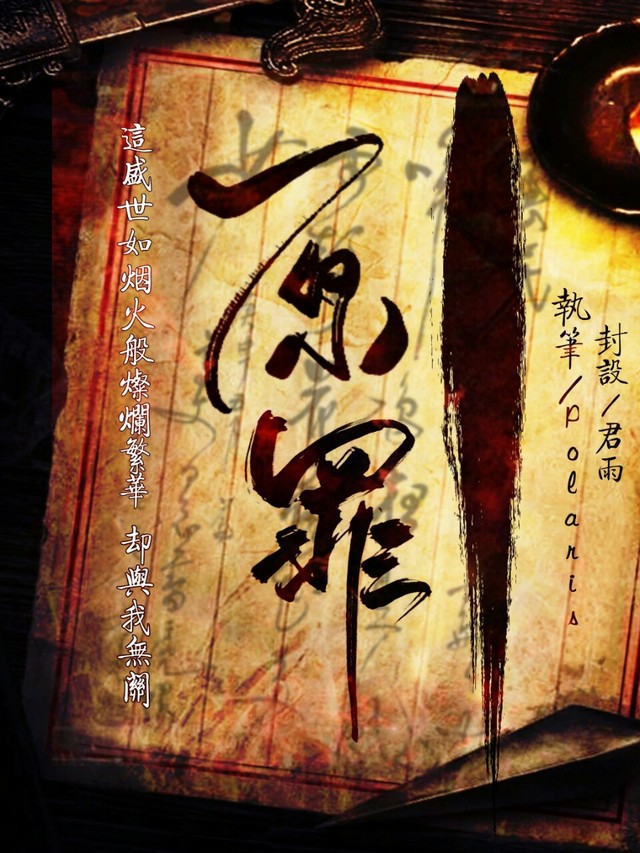 原罪
封設/君雨
執筆/polaris
這盛世如烟火般燦爛繁華 却與我無關